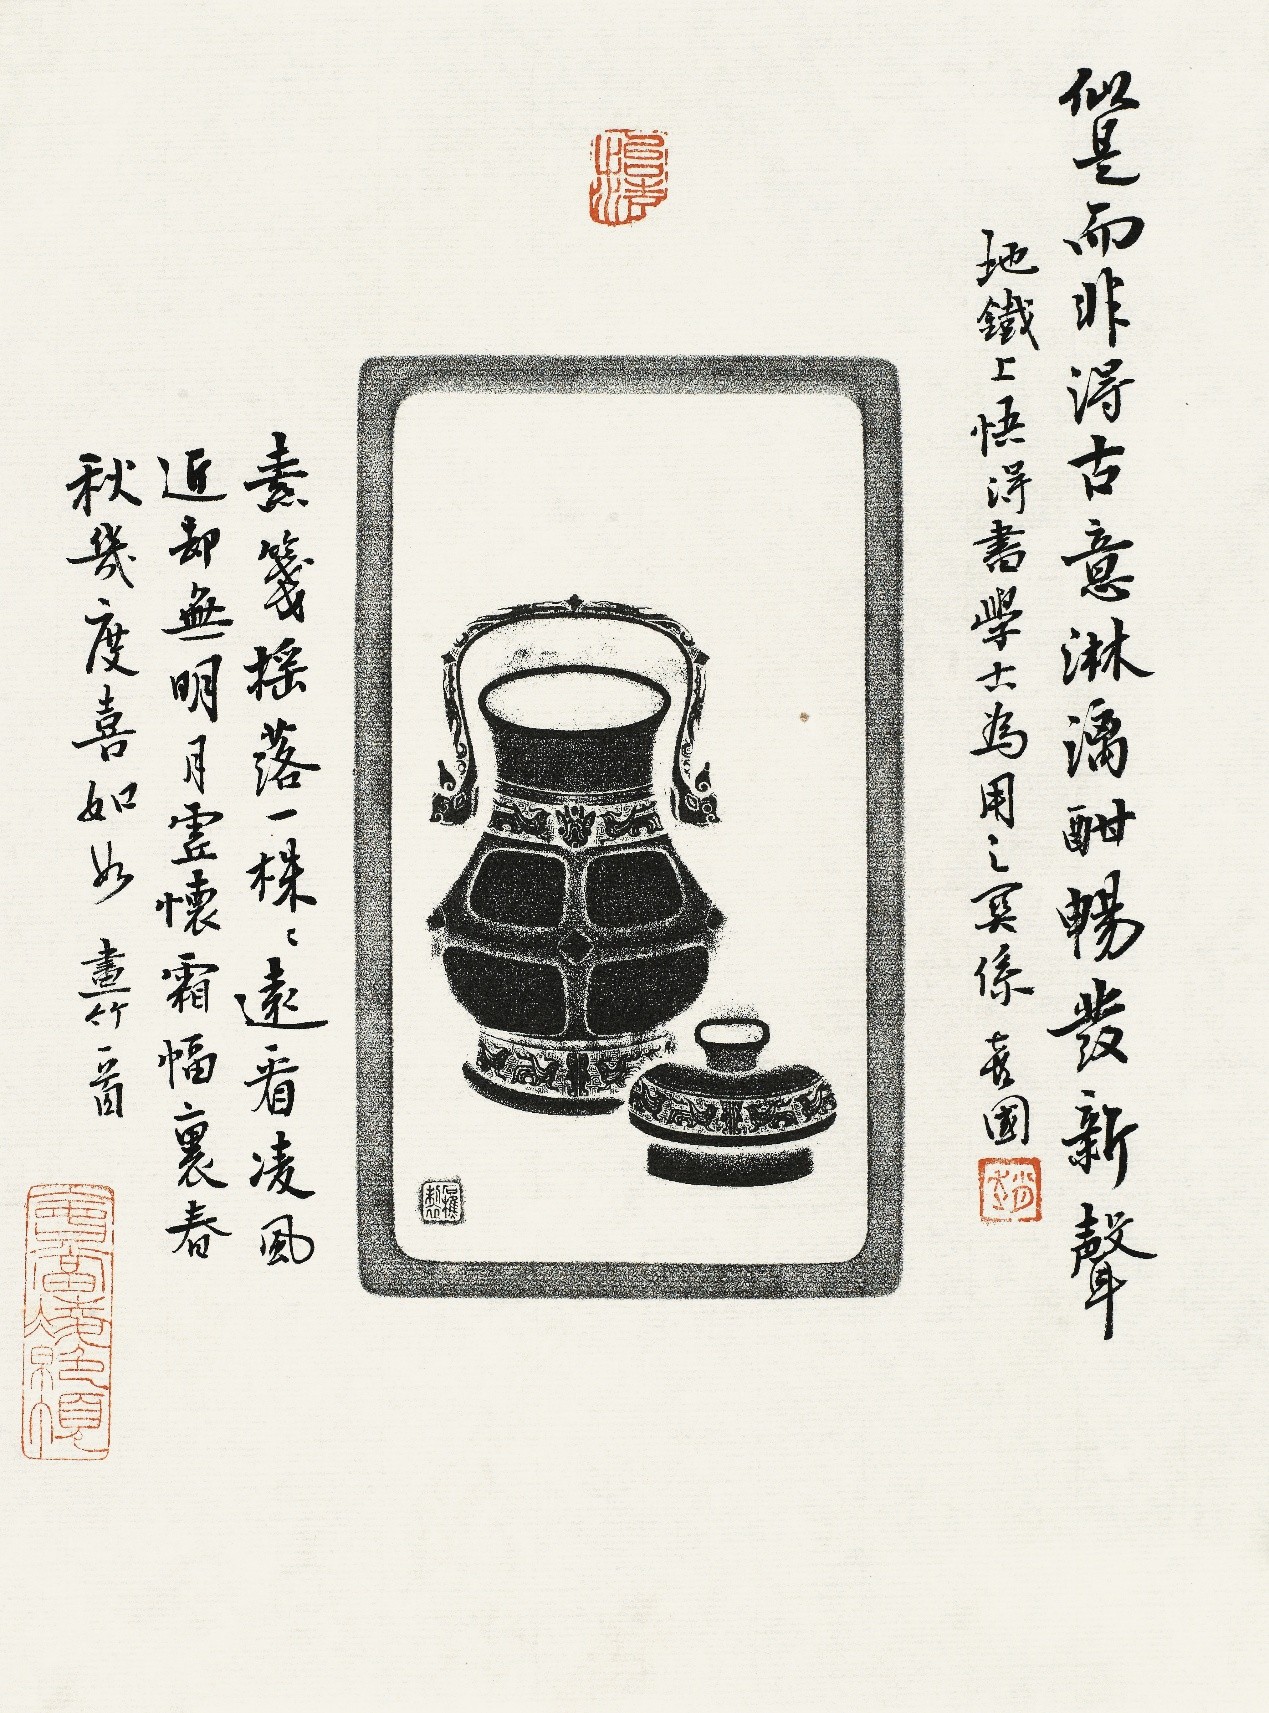 似是而非得古意淋漓酣暢發新聲
地鐵上悟得書學士為用之冥係 喜國
素箋摇落一株々遠看凌風
近却無明月靈懷霜幅裏春
秋幾度喜如如 畫竹一首